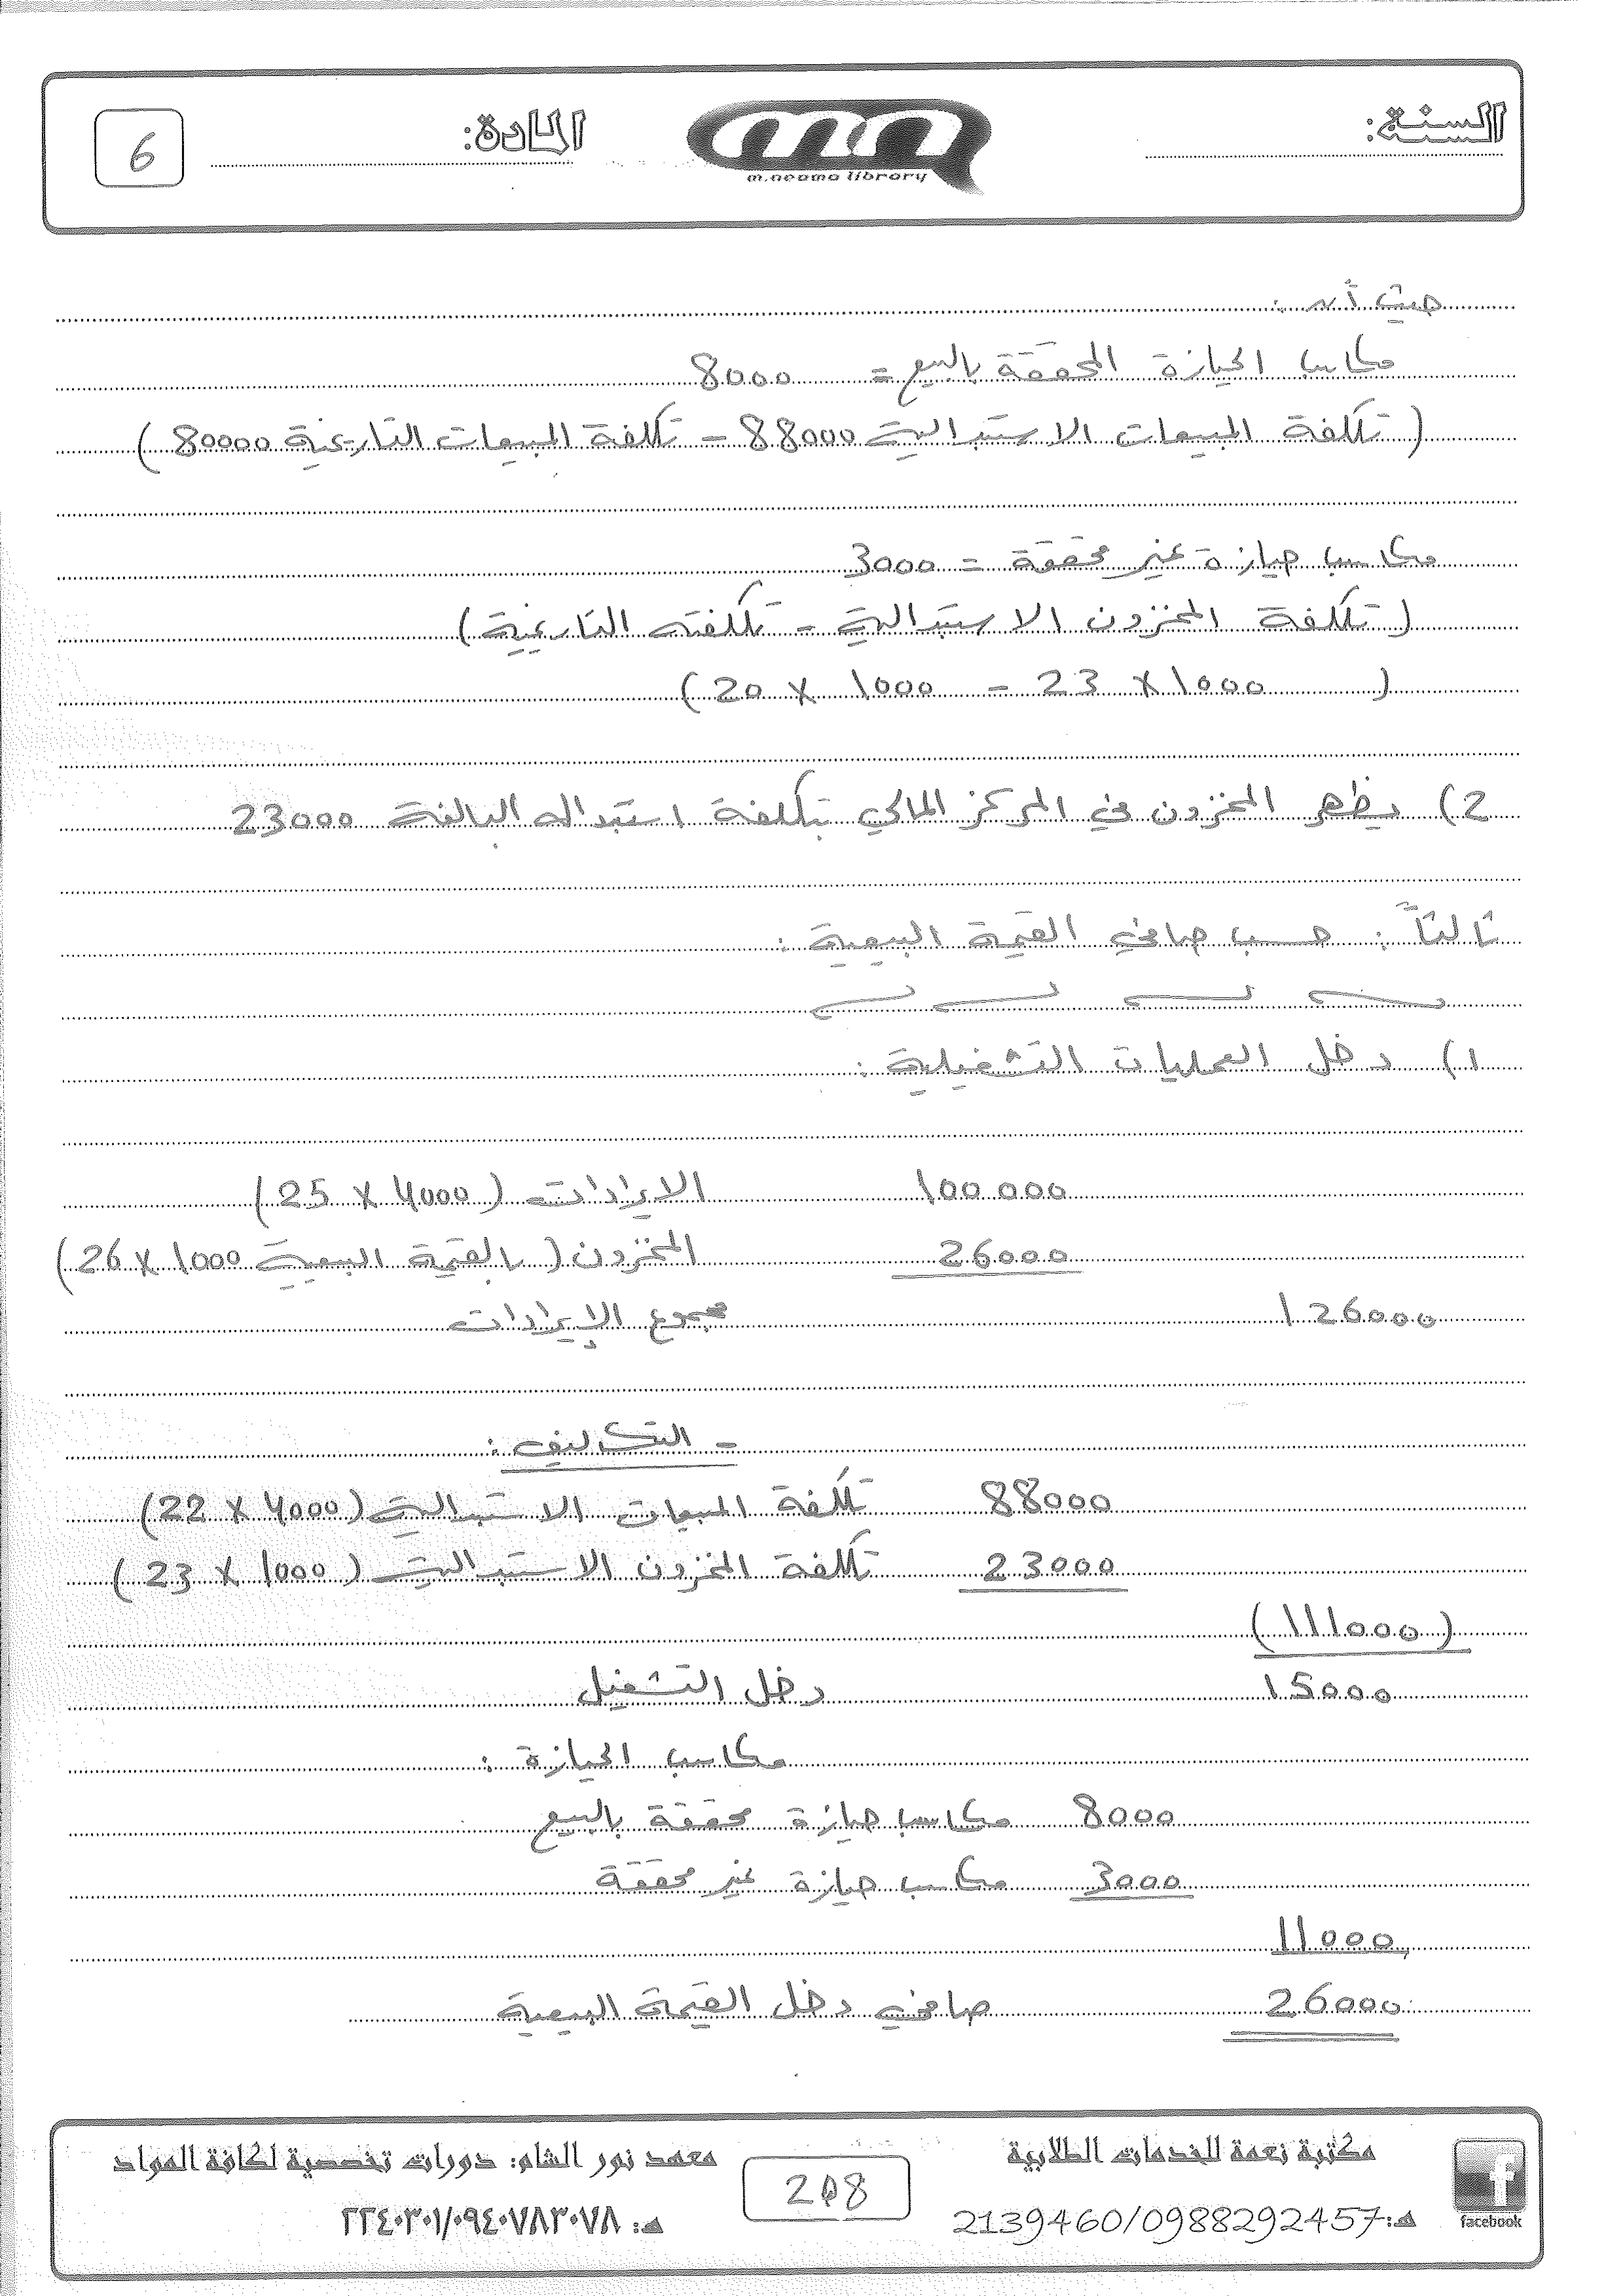 السنة:
المادة:
m.neama library
6
حيث أن :
مكاسب الحيازة المحققة بالبيع = 8000
( تكلفة المبيعات الاستبدالية 88000 - تكلفة المبيعات التاريخية 80000 )
مكاسب حيازة غير محققة = 3000
( تكلفة المخزون الاستبدالية - تكلفته التاريخية )
( 1000 × 23 - 1000 × 20 )
2) يظهر المخزون في المركز المالي بتكلفة استبداله البالغة 23000
ثالثاً : حسب صافي القيمة البيعية :
1) دخل العمليات التشغيلية :
100000 الايرادات ( 4000 × 25 )
26000 المخزون ( بالقيمة البيعية 1000 × 26 )
126000 مجموع الإيرادات
- التكاليف :
88000 تكلفة المبيعات الاستبدالية ( 4000 × 22 )
23000 تكلفة المخزون الاستبدالية ( 1000 × 23 )
( 111000 )
15000 دخل التشغيل
مكاسب الحيازة :
8000 مكاسب حيازة محققة بالبيع
3000 مكاسب حيازة غير محققة
11000
26000 صافي دخل القيمة البيعية
مكتبة نعمة للخدمات الطلابية
هـ: 2139460/0988292457
facebook
208
معهد نور الشام: دورات تخصصية لكافة المواد
هـ: ٢٢٤٠٣٠١/٠٩٤٠٧٨٣٠٧٨